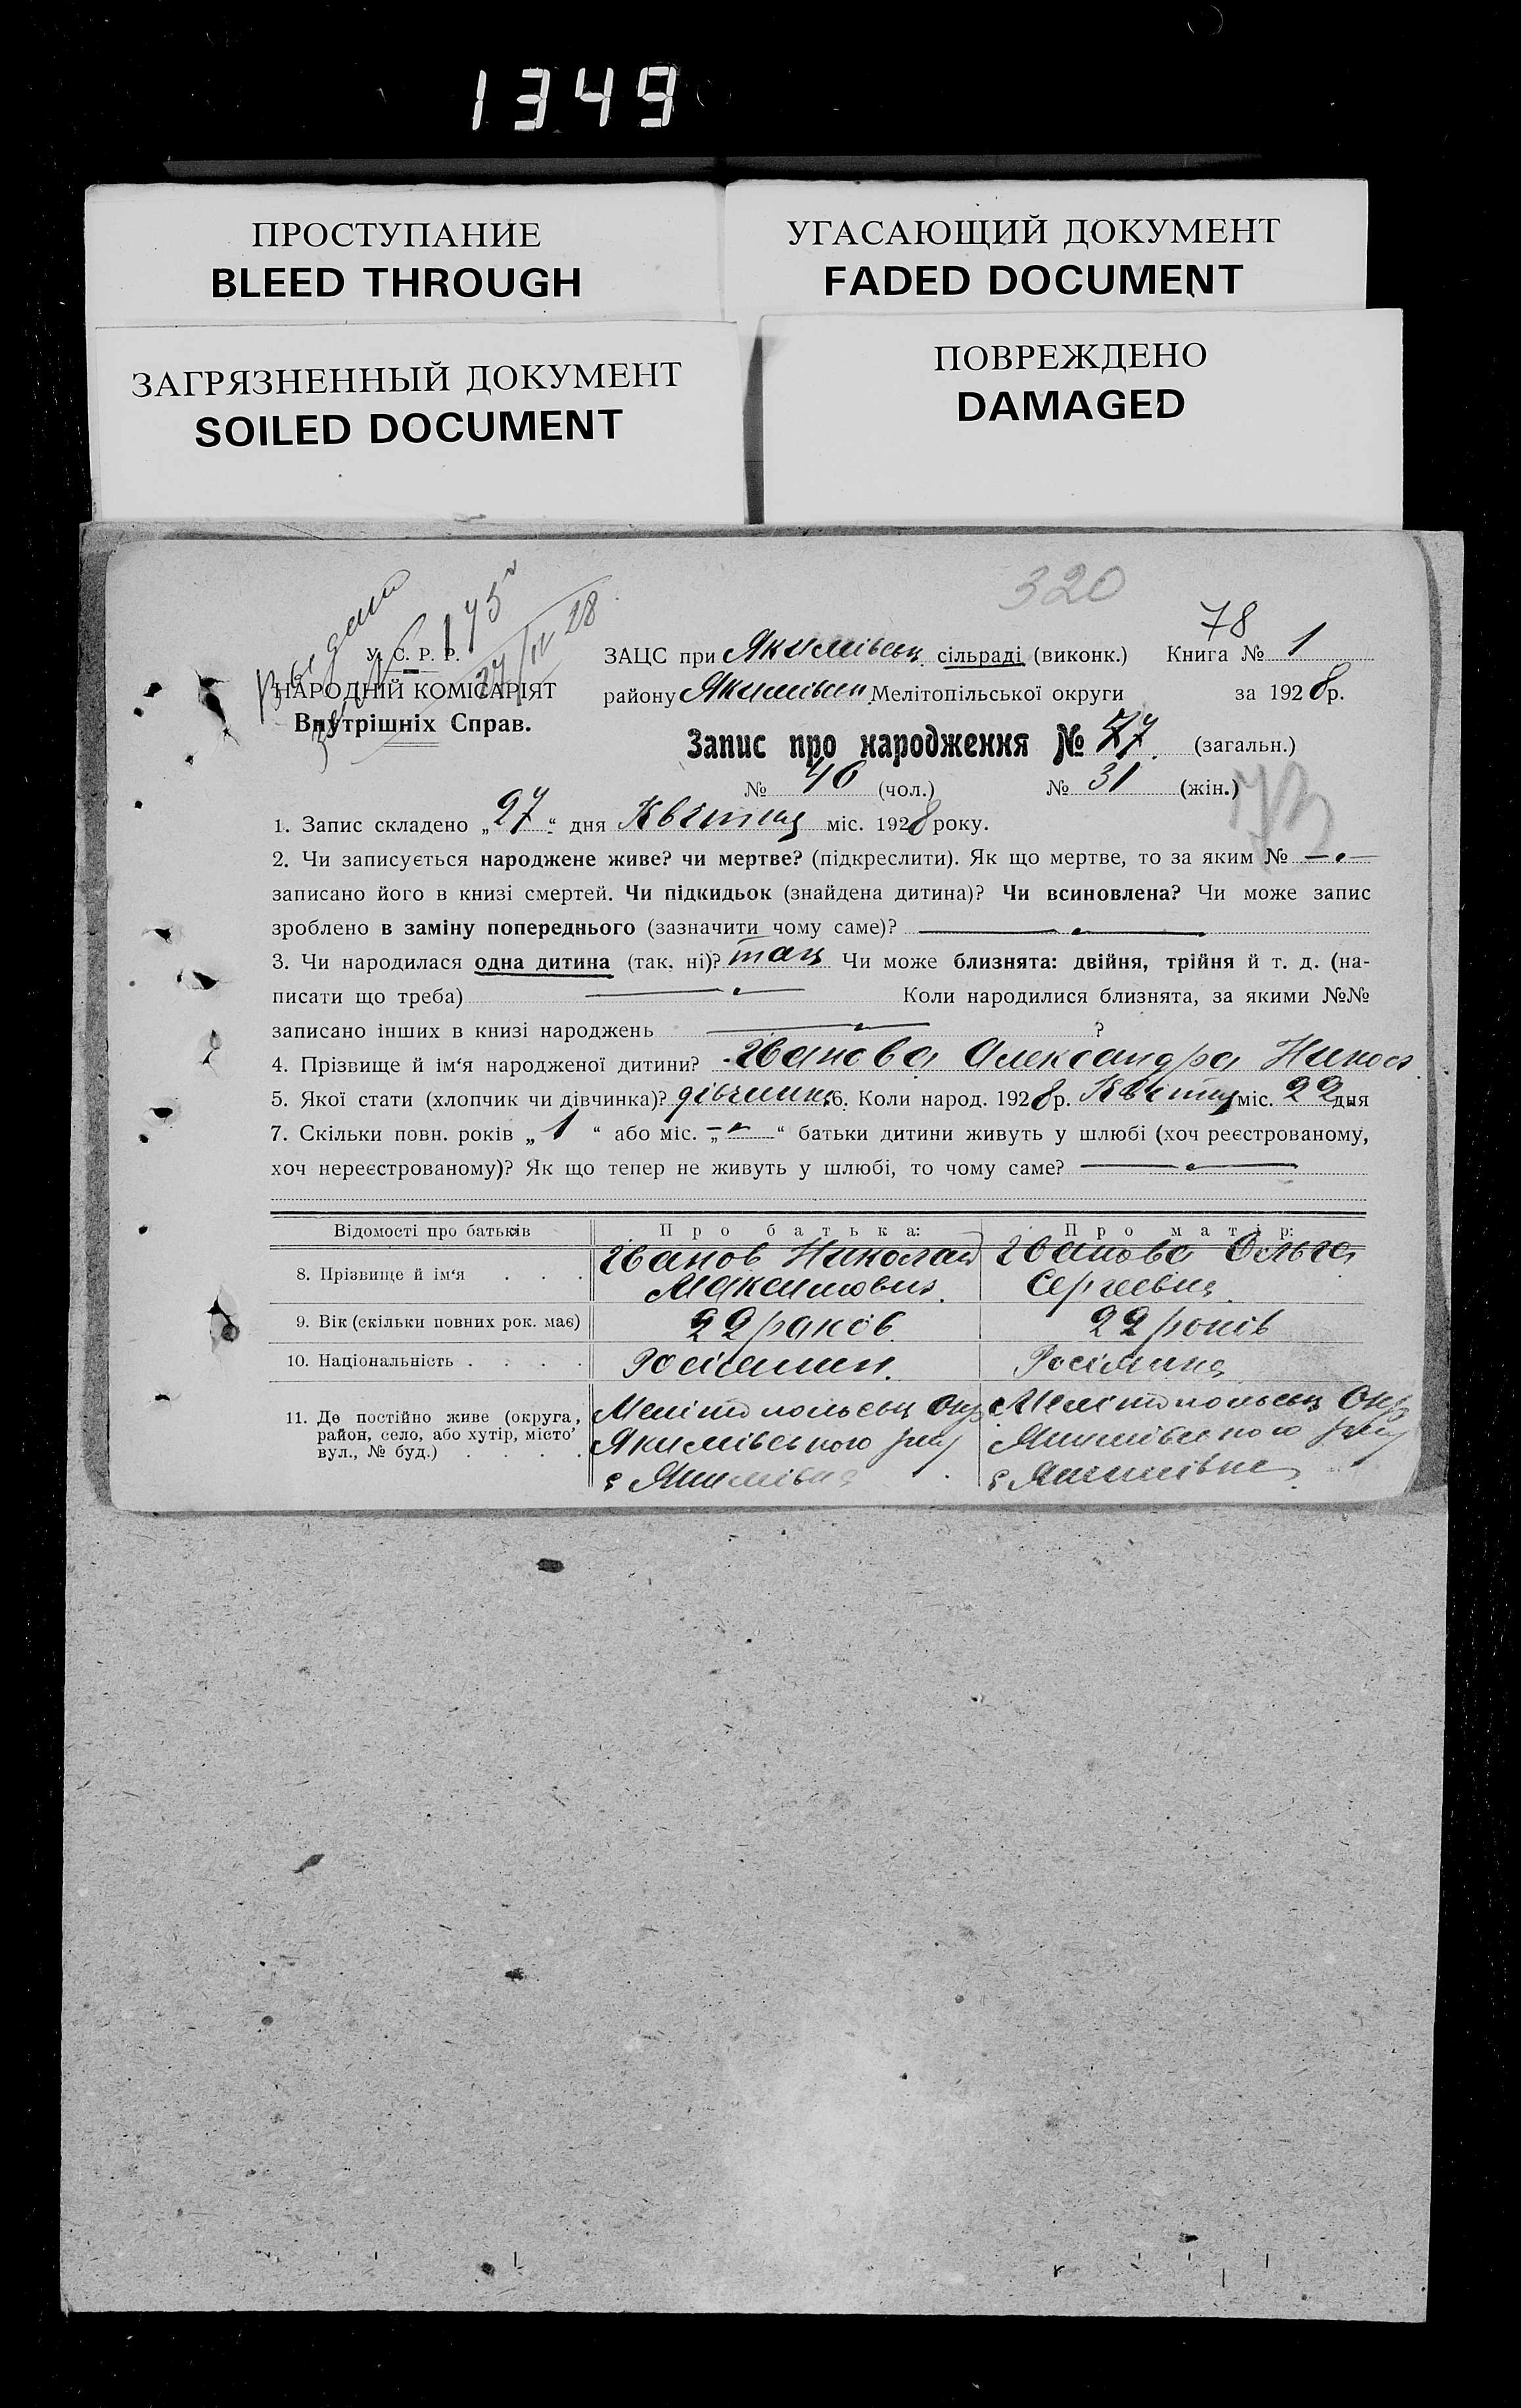 1349
ПРОСТУПАНИЕ
BLEED THROUGH
УГАСАЮЩИЙ ДОКУМЕНТ
FADED DOCUMENT
ЗАГРЯЗНЕННЫЙ ДОКУМЕНТ
SOILED DOCUMENT
ПОВРЕЖДЕНО
DAMAGED
320
78
У. С. Р. Р.
НАРОДНІЙ КОМІСАРІЯТ
Внутрішніх Справ.
27/IV 28
ЗАЦС при Якимівськ. сільраді (виконк.) Книга № 1
району Якимівськ. Мелітопільської округи за 1928 р.
Запис про народження № 77. (загальн.)
№ 46 (чол.) № 31 (жін.)
73
1. Запис складено „27“ дня Квітня міс. 1928 року.
2. Чи записується народжене живе? чи мертве? (підкреслити). Як що мертве, то за яким №
записано його в книзі смертей. Чи підкидьок (знайдена дитина)? Чи всиновлена? Чи може запис
зроблено в заміну попереднього (зазначити чому саме)?
3. Чи народилася одна дитина (так, ні)? так Чи може близнята: двійня, трійня й т. д. (на-
писати що треба) Коли народилися близнята, за якими №№
записано інших в книзі народжень ?
4. Прізвище й ім‘я народженої дитини? Іванова Александра Никол
5. Якої стати (хлопчик чи дівчинка)? дівчинка 6. Коли народ. 1928 р. Квітня міс. 22 дня
7. Скільки повн. років „ 1 “ або міс. „ “ батьки дитини живуть у шлюбі (хоч реєстрованому,
хоч нереєстрованому)? Як що тепер не живуть у шлюбі, то чому саме?
Відомості про батьків Про батька: Про матір:
8. Прізвище й ім‘я . . . Іванов Николай Іванова Ольга
Максимович. Сергеевна
9. Вік (скільки повних рок. має) 22 раков 22 років
10. Національність . . . . Росіянин. Росіянка
11. Де постійно живе (округа, Мелітопольськ Окр Мелітопольськ Окр
район, село, або хутір, місто’ Якимівського рну Якимівського рну
вул., № буд.) . . . . с Якимівка с Якимівка